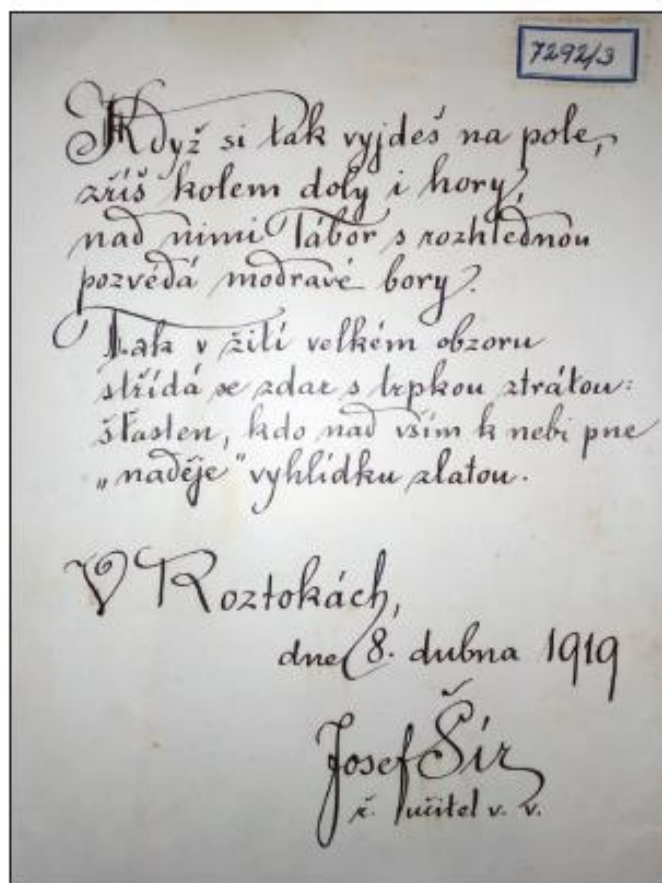 7292/3
Když si tak vyjdeš na pole,
zříš kolem doly i hory,
nad nimi Tábor s rozhlednou
pozvédá modravé bory.
Tak v žití velkém obzoru
střídá se zdar s trpkou ztrátou:
šťasten, kdo nad vším k nebi pne
„naděje" vyhlídku zlatou.
V Roztokách,
dne 8. dubna 1919
Josef Šír
ř. učitel v. v.